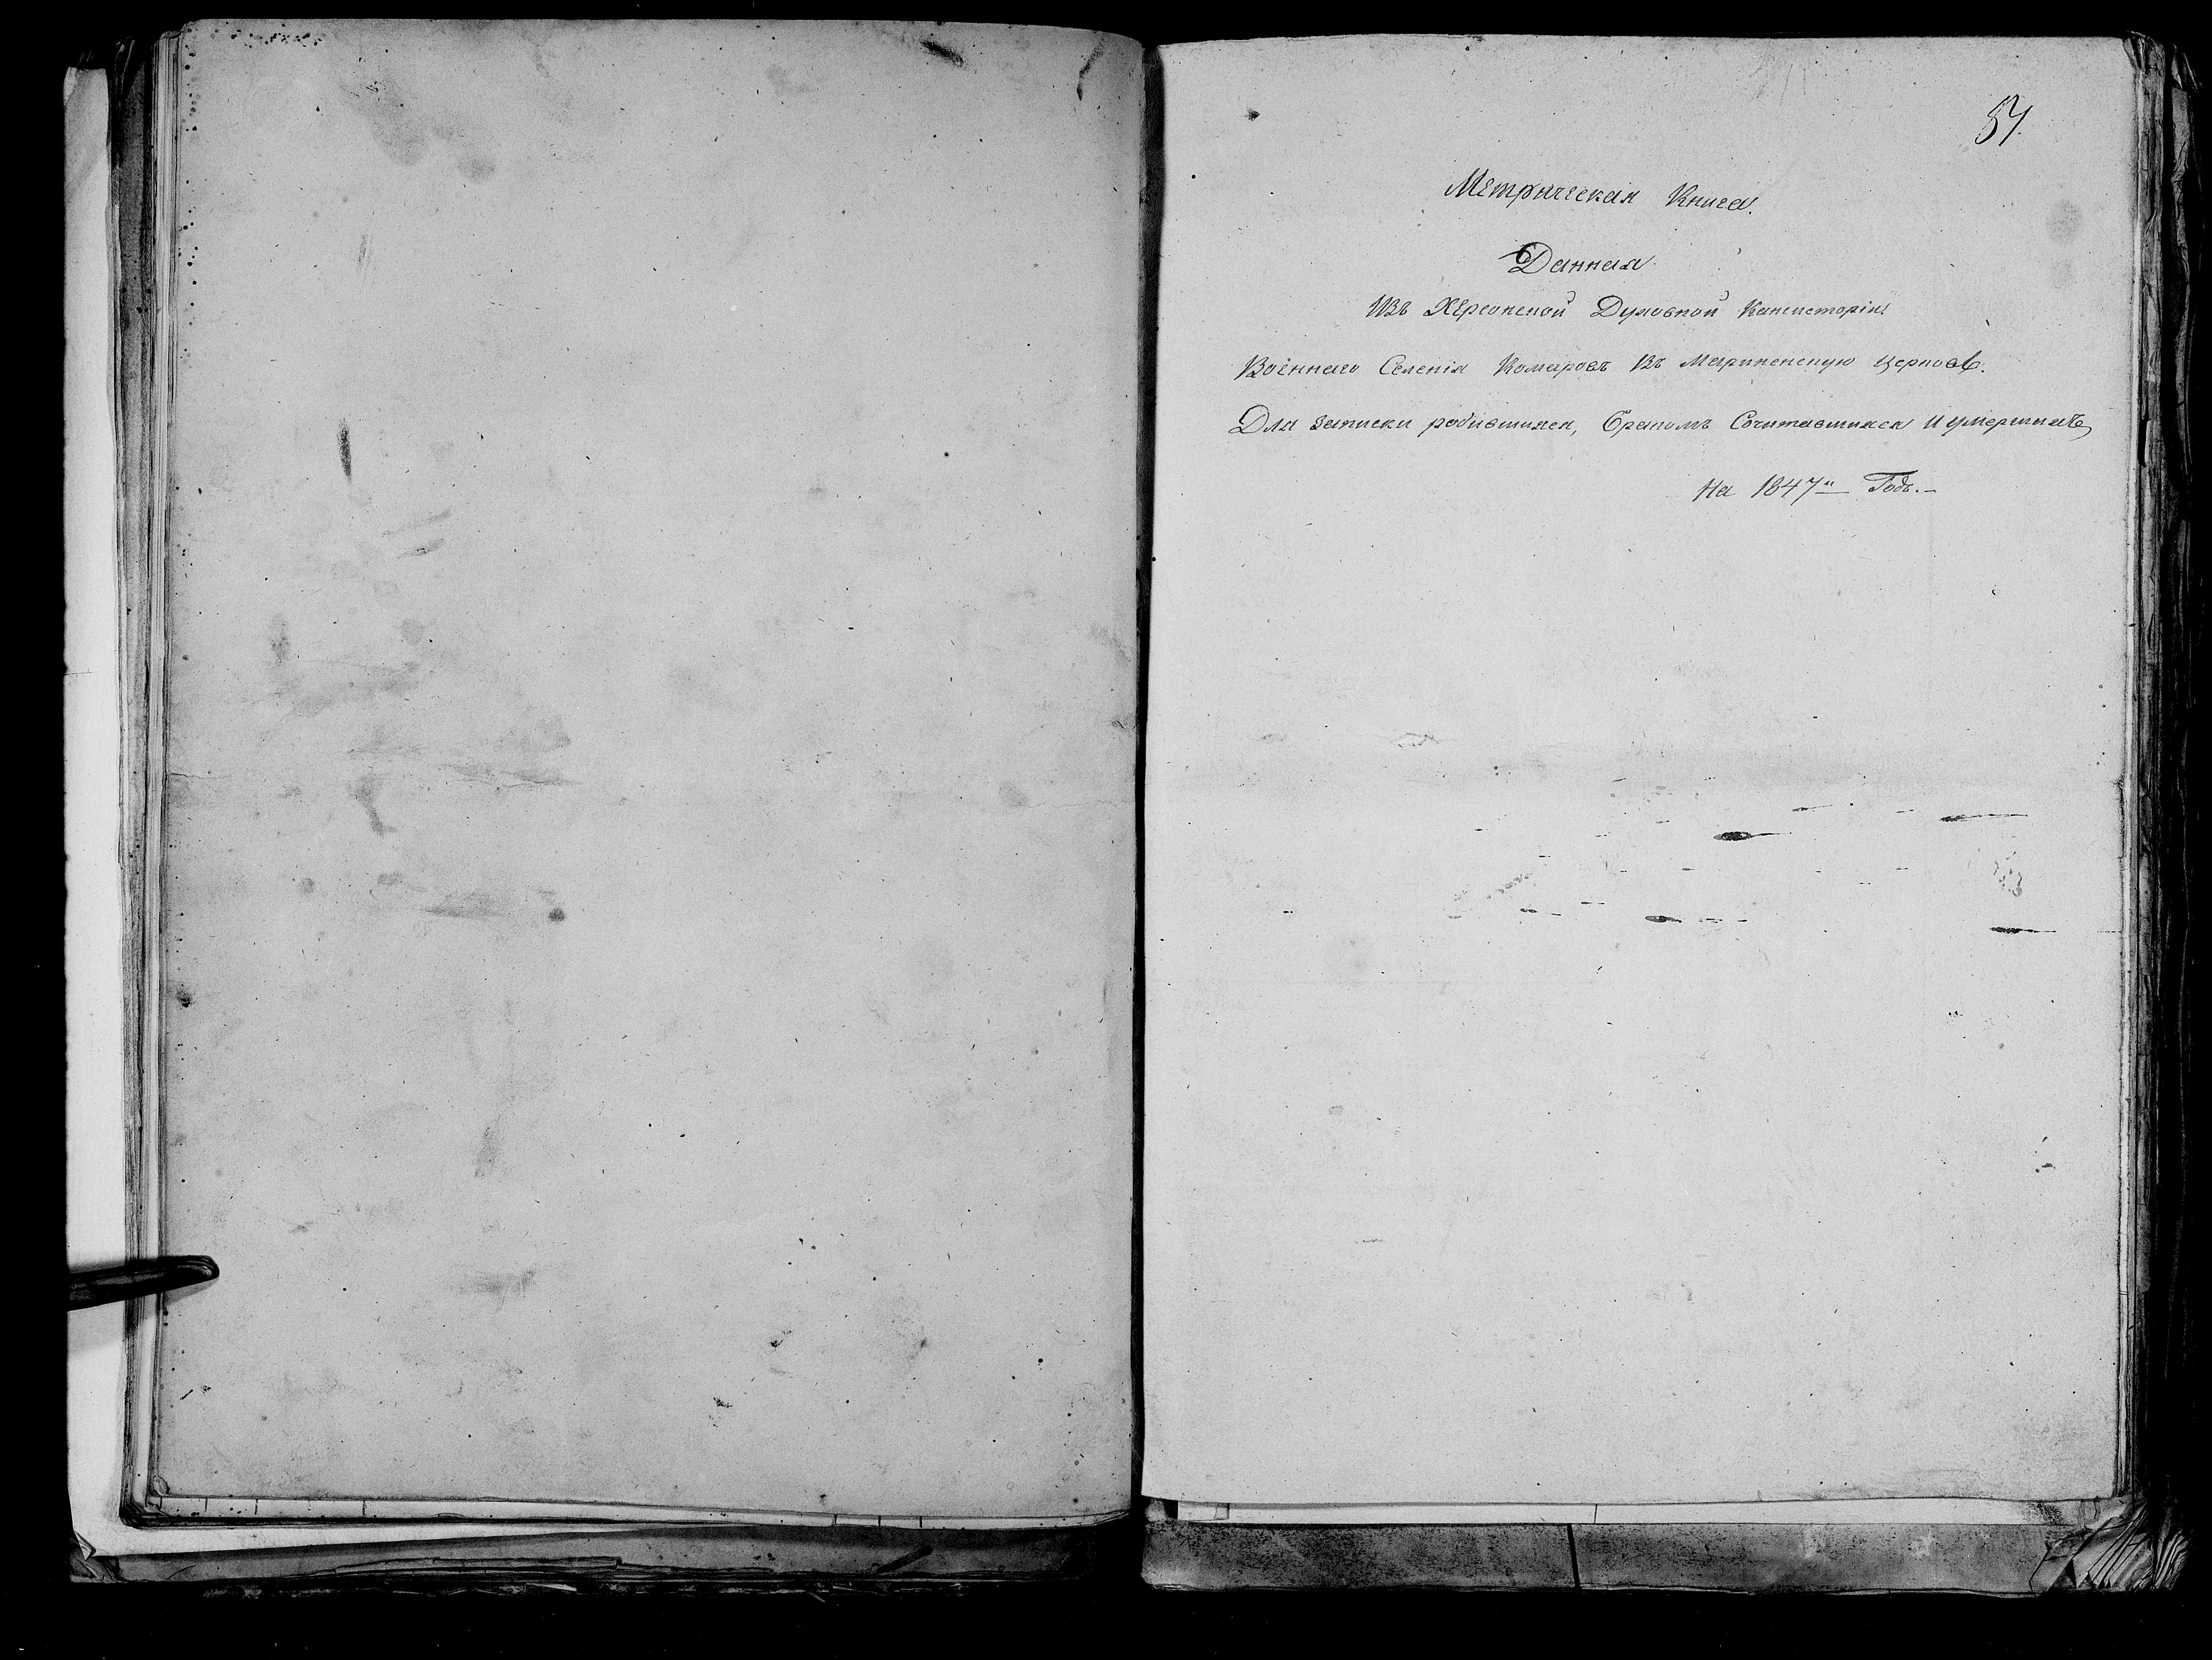 57.
Метрическая Книга.
Данная
Изъ Херсонской Духовной Канcисторіи
Военнаго Селенія Комаровъ Въ Мариненскую церковь.
Для записки родившихся, бракомъ Сочитавшихся и умершихъ
На 1847й Годъ.-